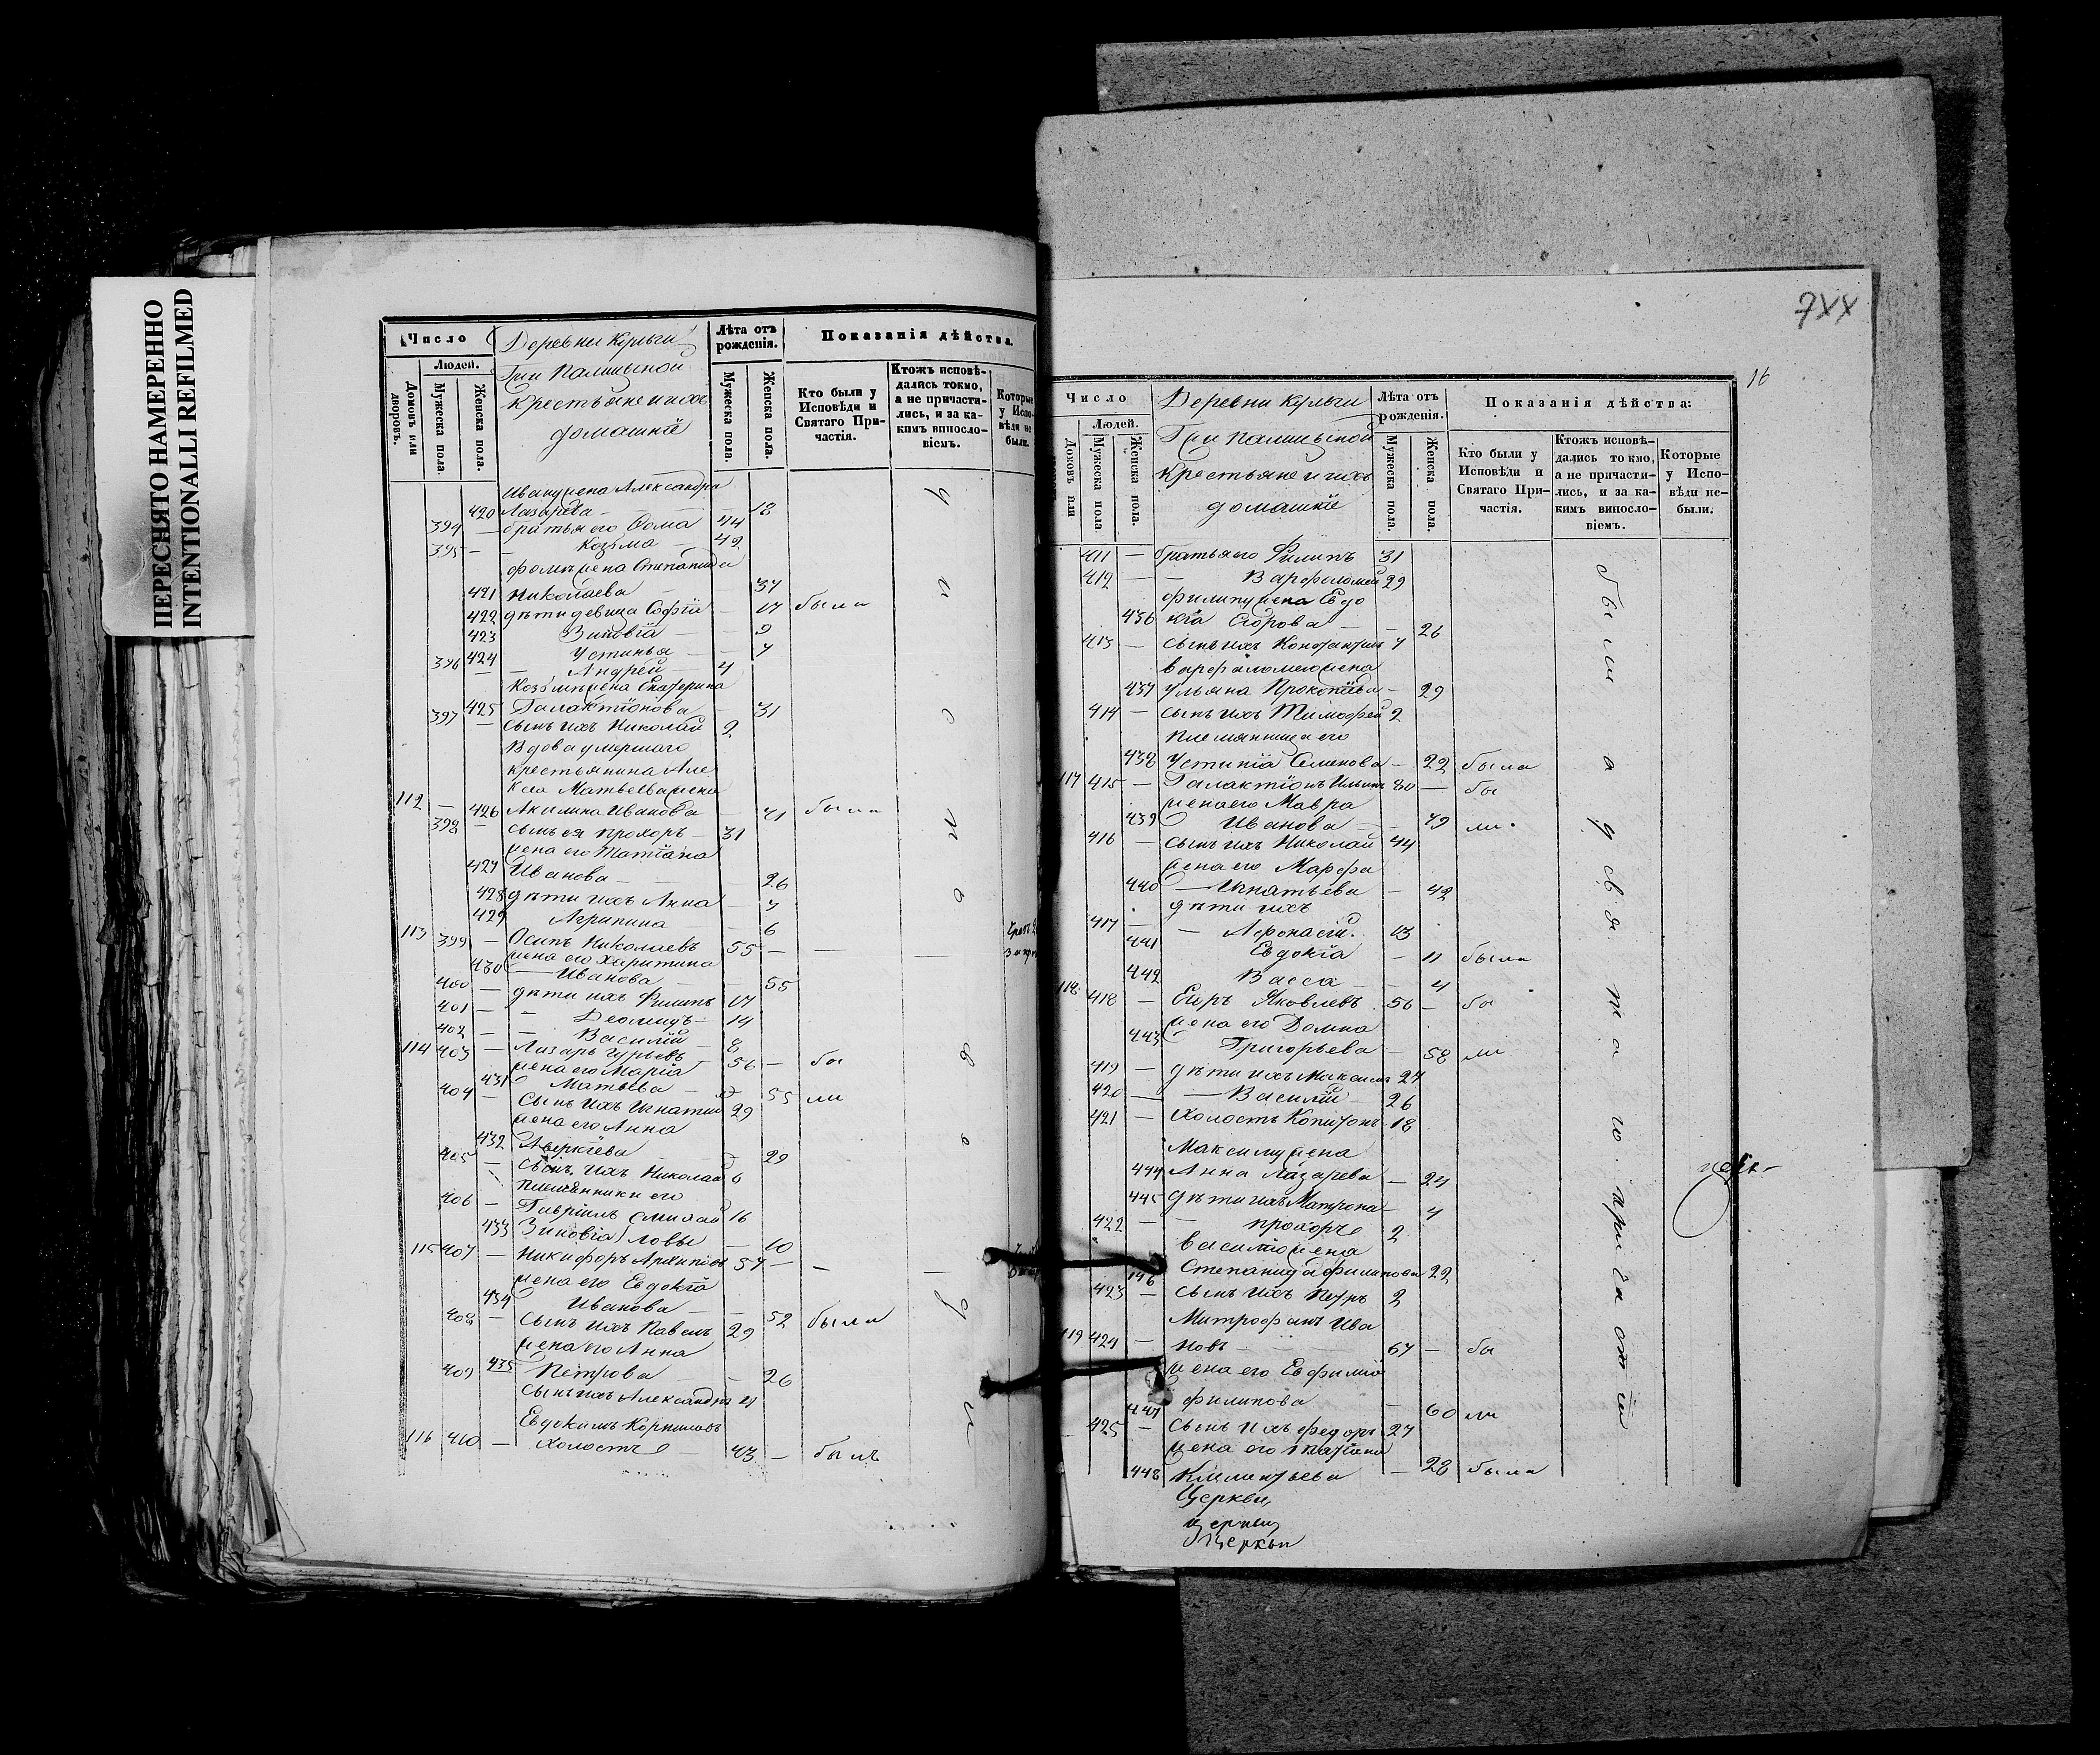 ПЕРЕСНЯТО НАМЕРЕННО
INTENTIONALLI REFILMED
Число
Людей.
Домовъ или дворовъ.
Мужеска пола.
Женска пола.
Деревни
Гжи Палицыной
крестьяне и ихъ
домашніе
Лѣта отъ рожденія.
Мужеска пола.
Женска пола.
Показанія дѣйства.
Кто были у Исповѣди и Святаго Причастія.
Ктожъ исповѣдались токмо, а не причастились, и за какимъ винословіемъ.
Которые у Исповѣди не были.
Ивана жена Александра
420 Лазарева — 18
394 — братья его Фома 44
395 — — Козьма — 42
Фомы жена Степанида
421 Николаева 37
422 дѣти девица Софія — 17 была
423 Зиновія — — 9
424 Устинья — — 7
396 — Андрей — 4
Козьмы жена Екатерина
425 Галактіонова — 31
397 — сынъ ихъ Николай 2
Вдова умершаго
крестьянина Але
ксея Матвеева жена
112 — 426 Акилина Иванова — 71 была
398 — сынъ ея Прохоръ — 31
жена его Татіана
427 Иванова — — 26
428 дѣти ихъ Анна — 7
429 Агрипина — 6
113 399 — Осипъ Николаевъ 55 — — —
жена его Харитина
430 — Иванова — — 55
400 — дѣти ихъ Филипъ 17
401 — — Деомидъ — 14
402 — — Василій — 8
114 403 — Лазарь Гурьевъ 56 — бы
жена его Марія
431 Матвеева — 55 ли
404 — Сынъ ихъ Игнатій 29
жена его Анна
432 Аверкіева — 29
405 — Сынъ ихъ Николай 6
племянники его
406 — Гавріилъ Михай 16
433 Зиновія ловы — 10
115 407 — Никифоръ Архиповъ 57 — — —
жена его Евдокія
434 Иванова — — 52 была
408 — Сынъ ихъ Павелъ 29
жена его Анна
435 Петрова — 26
409 сынъ ихъ Александръ 4
Евдокимъ Корниловъ
116 410 — холостъ 43 — былъ
у и с п о в е д и
7XX
16
Число
Людей.
Домовъ или
Мужеска пола
Женска пола.
Деревни
Гжи Палицыной
крестьяне и ихъ
домашніе
Лѣта отъ рожденія.
Мужеска пола.
Женска пола.
Показанія дѣйства:
Кто были у Исповѣди и Святаго Причастія.
Ктожъ исповѣдались токмо, а не причастились, и за какимъ винословіемъ.
Которые у Исповѣди небыли.
411 — братья его Филипъ 31
412 — — Варфоломей 29
Филипа жена Евдо
436 кія Егорова — — 26
413 — сынъ ихъ Константинъ 7
Варфаломея жена
437 Ульяна Прокопіева — 29
414 — сынъ ихъ Тимофей 2
племянница его
438 Устинія Семенова — 22 была
117 415 — Галактіонъ Ильинъ 80 — бы
жена его Мавра
439 Иванова — 79 ли.
416 — сынъ ихъ Николай 44
жена его Марфа
440 — Игнатьева — 42
дѣти ихъ
417 — — Афонасій. 13
441 Евдокія — 11 была
442 Васса — 4
118 418 — Егоръ Яковлевъ 56 — бы
жена его Домна
443 Григорьева — 58 ли
419 — дѣти ихъ Максимъ 27
420 — — Василій — 26
421 — холостъ Капитонъ 18
Максима жена
444 Анна Лазарева — 24
445 дѣти ихъ Матрона — 4
422 — — Прохоръ 2
Василія жена
446 Степанида Филипова 22
423 — сынъ ихъ Петръ 2
Митрофанъ Ива
119 424 — новъ — 67 — бы
жена его Евфимія
447 Филипова — 60 ли
425 — Сынъ ихъ Федоръ 27
жена его Татіана
448 Климентьева — 28 была
Церкви,
Церкви
были а у свя т а го при ча ст ія